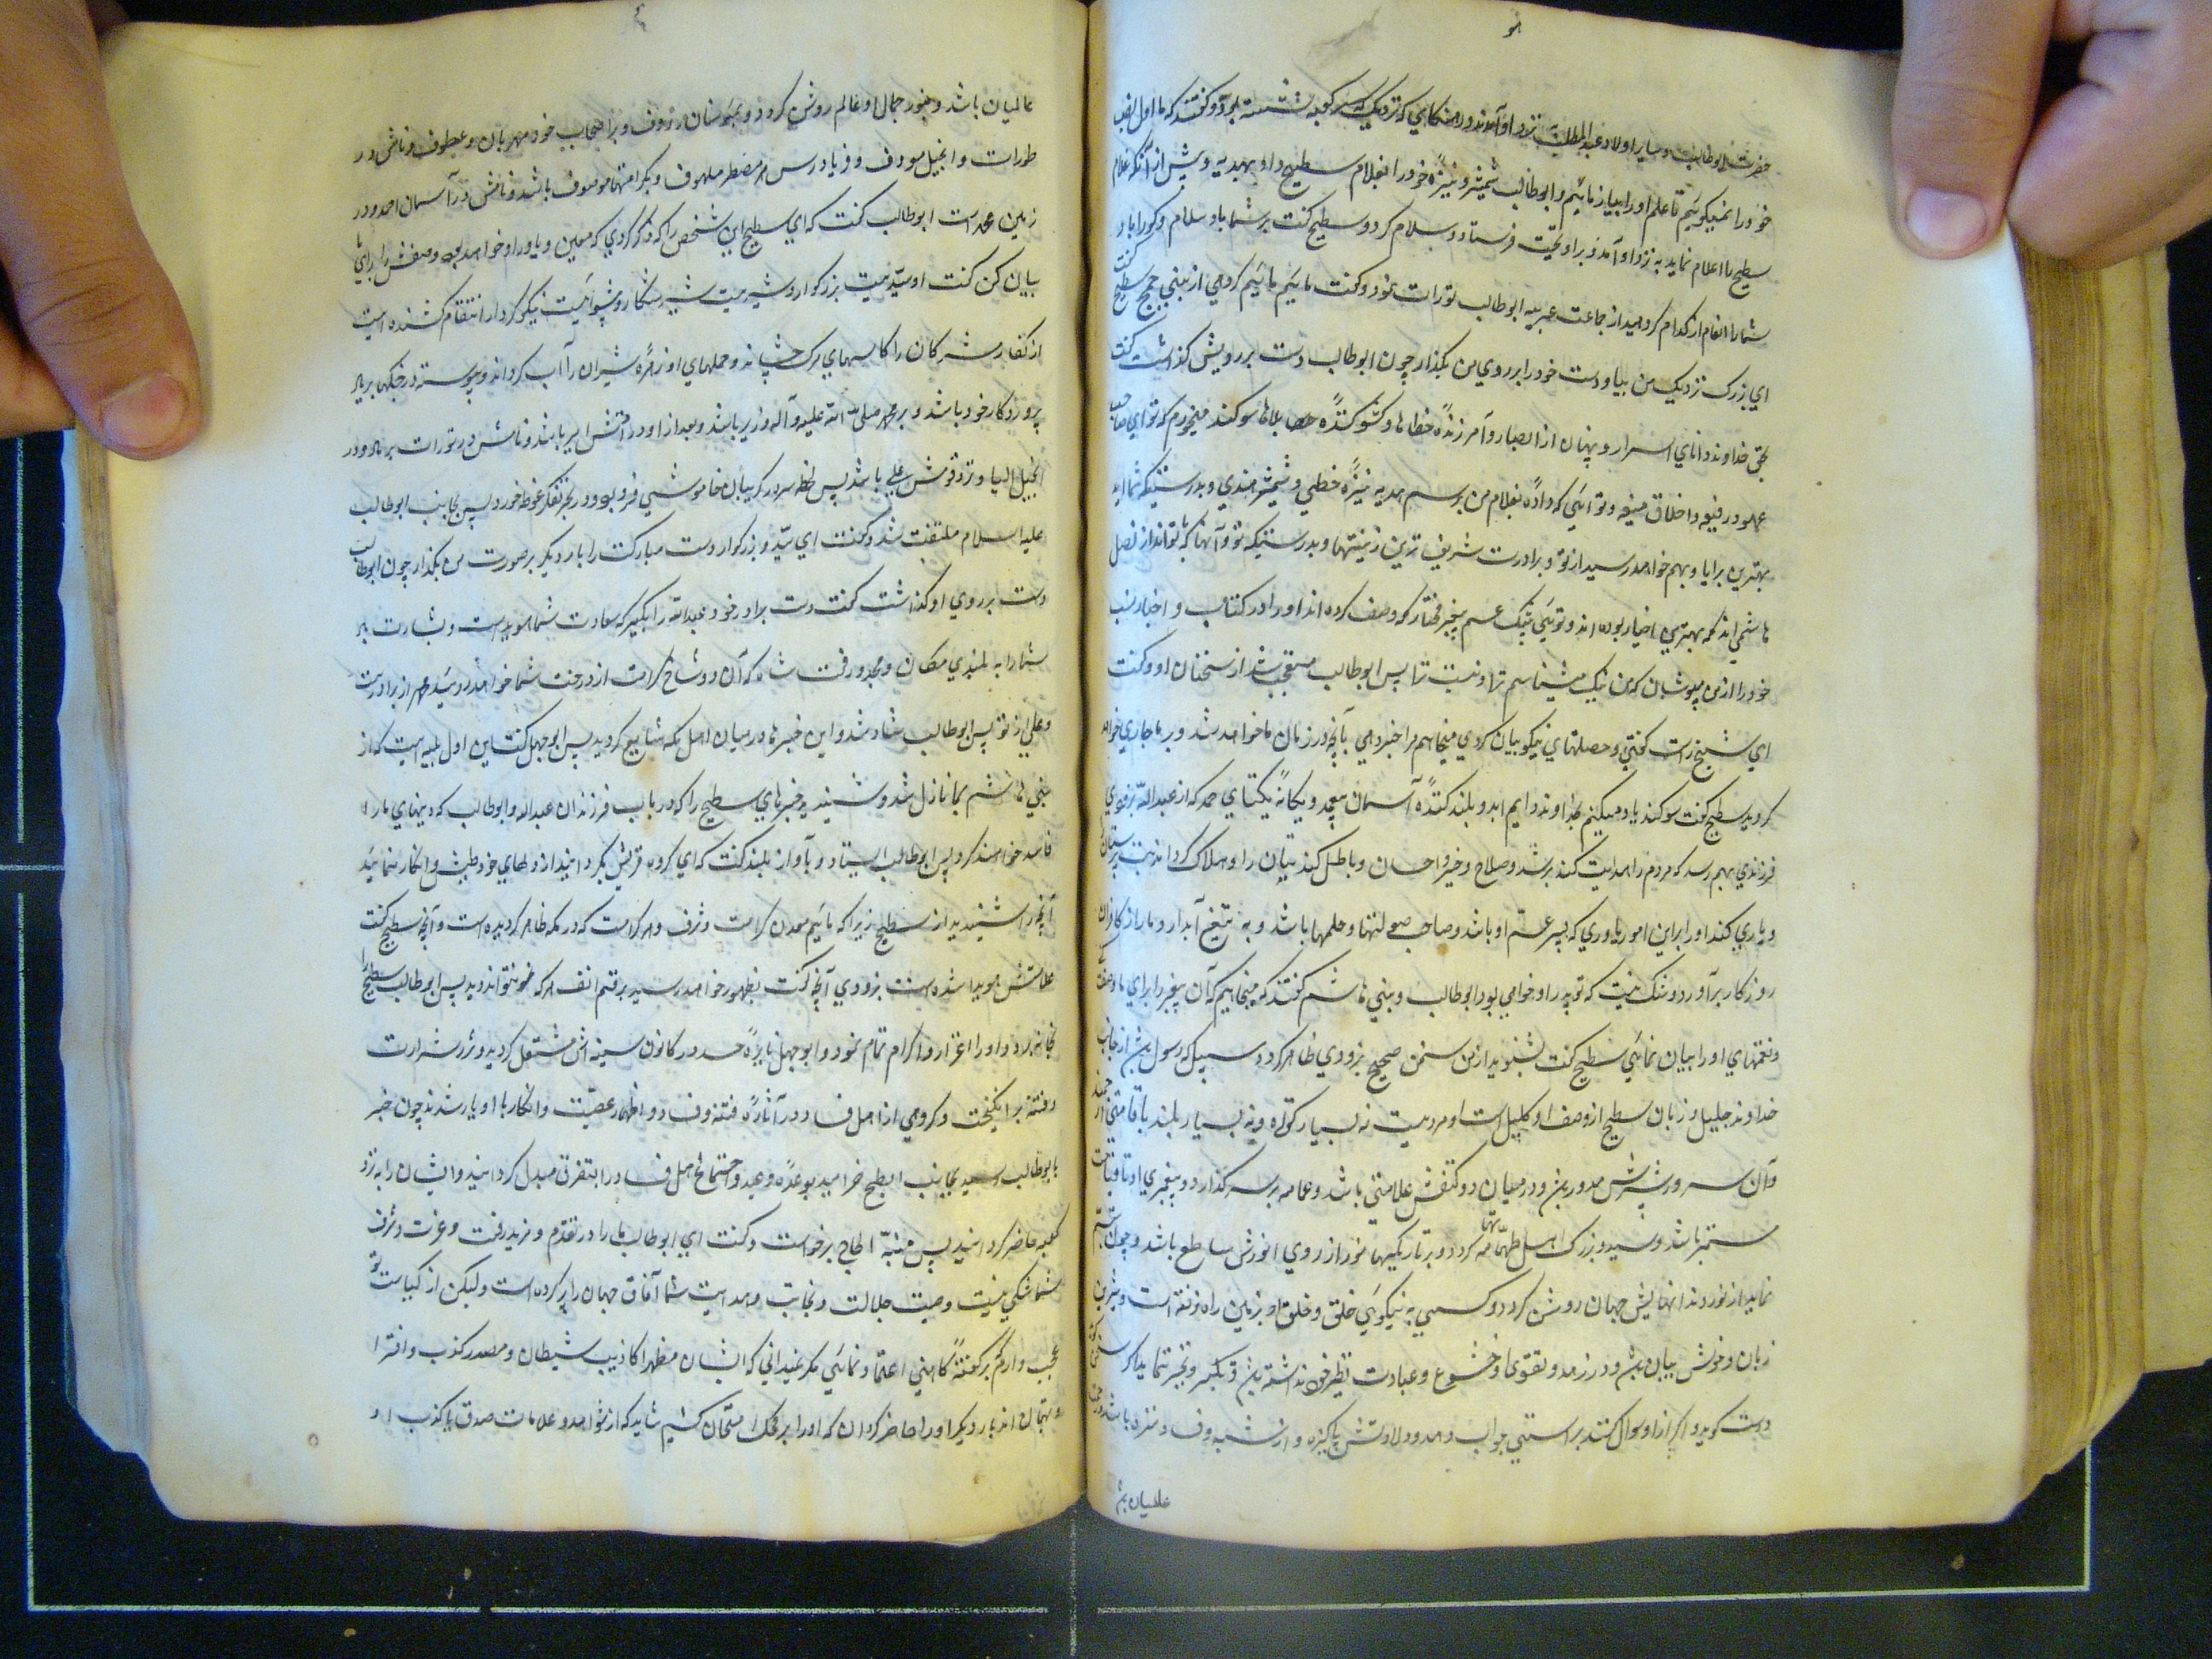 حضرت ابوطالب و سایر اولاد عبدالمطلب نزد او آمدند در هنگامی که نزدیک کعبه نشسته بود و گفتند که ما اول نسب
خود را نمیگوئیم تا علم او را بیازمائیم و ابوطالب شمشیر و نیزه خود را بغلام سطیح داد بهدیه و پیش از آنکه غلام
سطیح را اعلام نماید به نزد او آمد و بر او تحیت فرستاد و سلام کرد و سطیح گفت بر شما باد سلام و گوارا باد
شما را انعام از کدام گروهید از جماعت عرب ابوطالب تورات نمود و گفت مائیم گروهی از بنی جمح سطیح گفت
ای بزرگ نزدیک من بیا و دست خود را بر روی من بگذار چون ابوطالب دست بر رویش گذاشت گفت
بحق خداوند دانای اسرار و پنهان از ابصار و آمرزنده خطاها و کشف کننده بلاها سوگند میخورم که توئی صاحب
عهود رفیعه و اخلاق منیعه و توئی که داده بغلام من برسم هدیه نیزه خطی و شمشیر هندی و بدرستیکه شمائید
بهترین برایا و بهم خواهد رسید از تو و برادرت شریف ترین ذریتها و بدرستیکه تو و آنها که با تواند از نسل
هاشمی اند که بهترین اخیار بوده اند و توئی بیشک عم پیغمبر مختار که وصف کرده اند او را در کتاب و اخبار نسب
خود را از من مپوشان که من نیک میشناسم ترا و نسب ترا پس ابوطالب متعجب شد از سخنان او و گفت
ای شیخ راست گفتی و خصلتهای نیکو بیان کردی میخواهم مرا خبر دهی بآنچه در زمان ما خواهد شد و بر ما جاری خواهد
گردید سطیح گفت سوگند یاد میکنم بخداوند دایم ابد و بلند کننده آسمان بیعمد و یگانه یکتای صمد که از عبدالله بزودی
فرزندی بهم رسد که مردم را هدایت کند برشد و صلاح و خیر و احسان و باطل کند بتان را و هلاک گرداند بت پرستان
و یاری کند او را بر این امور یاوری که پسر عم او باشد و صاحب صولتها و حملها باشد و به تیغ آبدار دمار از کافران
روزگار برآورد و شک نیست که تو پدر او خواهی بود ابوطالب و بنی هاشم گفتند که میخواهیم که آن پیغمبر را برای ما وصف
و نعتهای او را بیان نمائی سطیح گفت بشنوید از من سخن صحیح بزودی ظاهر گردد سبیل که رسول باشد از جانب
خداوند جلیل و زبان سطیح از وصف او کلیل است او مردیست نه بسیار کوتاه و نه بسیار بلند با قامتی ارجمند
و آن سرور سرش مدور بود و در میان دو کتفش علامتی باشد و عمامه بر سر گذارد و پیغمبری او تا قیامت
مستمر باشد و سید و بزرگ اهل تهامه گردد و در تاریکیها نور از روی انورش ساطع باشد و چون تبسم
نماید از نور دندانهایش جهان روشن گردد و کسی به نیکوئی خلق و خلق او بر زمین راه نرفته است و شیرین
زبان و خوش بیان باشد و در زهد و تقوی و خشوع و عبادت نظیر خود نداشته باشد و تکبر و تجبر ننماید اگر سخن گوید
درست گوید و اگر از او سؤال کنند براستی جواب دهد و ولادتش پاکیزه و از شبه و فساد منزه باشد و رحمت
عالمیان باشد
عالمیان باشد و بنور جمال او عالم روشن گردد و بمؤمنان رؤوف و بر اصحاب خود مهربان و عطوف و نامش در
طورات و انجیل معروف و فریادرس هر مضطر ملهوف و بکرامتها موصوف باشد و نامش در آسمان احمد و در
زمین محمد است ابوطالب گفت که ای سطیح این شخص را که ذکر کردی که معین و یاور او خواهد بود وصفش را برای ما
بیان کن گفت او سیدیست بزرگوار و شیریست شیر شکار و پیشوائیست نیکوکردار انتقام کشنده است
از کفار مشرکان را کاسهای مرگ چشاند و حملهای او زهره شیران را آب گرداند و پیوسته در جنگها بر یاد
پروردگار خود باشد و بر محمد صلی الله علیه و آله وزیر باشد و بعد از او در امتش امیر باشد و نامش در تورات بریا و در
انجیل الیا و نزد قومش علی باشد پس لحظه سر در گریبان خاموشی فرو برد و در بحر تفکر غوطه خورد پس بجانب ابوطالب
علیه السلام ملتفت شد و گفت ای سید و بزرگوار دست مبارکت را بار دیگر بر صورت من بگذار چون ابوطالب
دست بر روی او گذاشت گفت دست برادر خود عبدالله را بگیر که سعادت شما هویدا است و بشارت باد
شما را به بلندی مکان و مجد و رفعت شأن که آن دو شاخ کرامت از درخت شما خواهد روئید محمد از برادرت
و علی از تو پس ابوطالب شاد شد و این خبرها در میان اهل مکه شایع گردید پس ابوجهل گفت این اول بلیه ایست که از
بنی هاشم بما نازل شد و شنیدید خبرهای سطیح را که در باب فرزندان عبدالله و ابوطالب که دینهای ما را
فاسد خواهند کرد پس ابوطالب ایستاد و بآواز بلند گفت که ای گروه قریش بگردانید از دلهای خود طیش و انکار ننمائید
آنچه را شنیدید از سطیح زیرا که مائیم معدن کرامت و شرف و هر کرامت که در مکه ظاهر گردیده است و آنچه سطیح گفت
علامتش هویدا شده است بزودی آنچه گفت بظهور خواهد رسید برغم انف هر که نمیتواند دید پس ابوطالب سطیح را
بخانه برد و او را اعزاز و اکرام تمام نمود و ابوجهل نایره حسد در کانون سینه اش مشتعل گردید و شرر شرارت
و فتنه برانگیخت و گروهی از اهل فساد در آثاره فتنه و فساد و اظهار عصبیت و انکار با او یار شدند چون خبر
بابوطالب رسید بجانب ابطح خرامید بوعده و وعید اجتماع اهل فساد را بتفرق مبدل گردانید و ایشان را به نزد
کعبه حاضر گردانید پس منبه الحاج برخواست و گفت ای ابوطالب ما را در تقدم و مزید رفعت و عزت و شرف
شما شکی نیست وصیت جلالت و نجابت و هدایت شما آفاق جهان را پر کرده است ولیکن از کیاست تو
عجب دارم که بر گفته کاهنی اعتماد نمائی مگر نمیدانی که ایشان مظهر اکاذیب شیطان و مصدر کذب و افترا
و بهتان اند بار دیگر او را حاضر گردان که او را بر محک امتحان کشیم شاید که از شواهد و علامات صدق یا کذب او